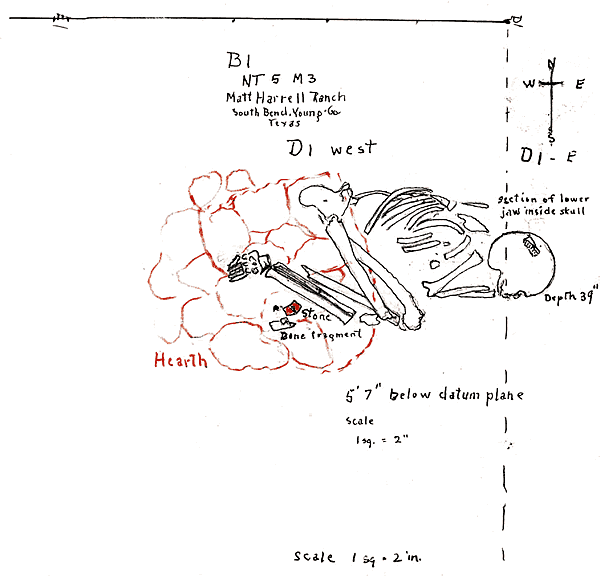 B1
NT 5 M3
Matt Harrell Ranch
South Bend, Young-Co
Texas
D1 west
N
W E
S
D1 - E
section of lower
jaw inside skull
Depth 39"
Stone
Bone fragment
Hearth
5' 7" below datum plane
Scale
1 sq. = 2"
Scale 1 sq = 2 in.